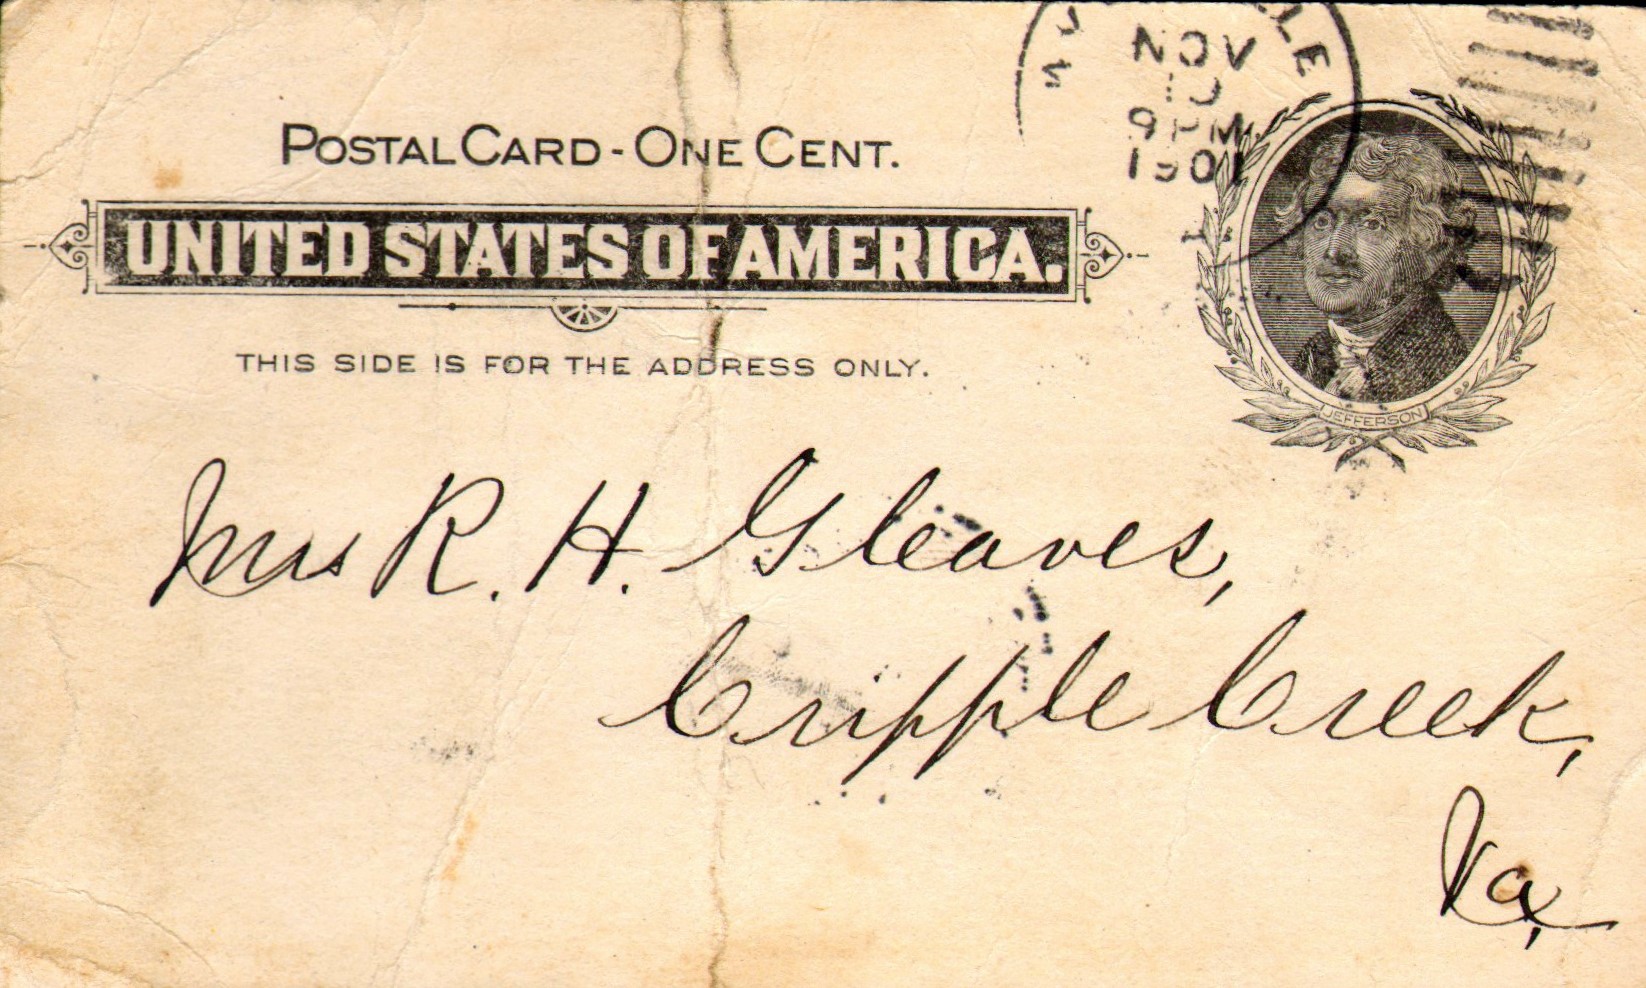 LE
NOV
9 PM
1901
POSTAL CARD - ONE CENT.
UNITED STATES OF AMERICA.
THIS SIDE IS FOR THE ADDRESS ONLY.
JEFFERSON
Mrs R. H. Gleaves,
Cripple Creek,
Va,